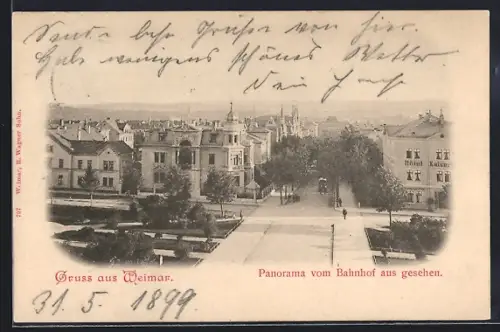 Sende bzw. Grüsse von hier.
Habe wenigens schönes Wetter
Dein
Hôtel Kaiser
Gruss aus Weimar.
Panorama vom Bahnhof aus gesehen.
31. 5. 1899
727 Weimar, E. Wagner Sohn.